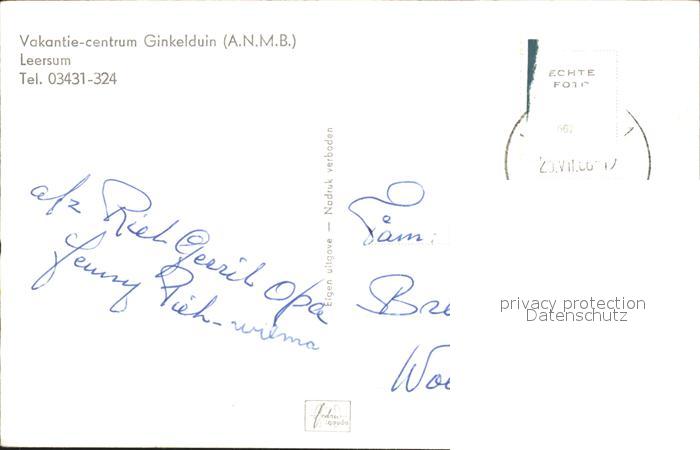 Vakantie-centrum Ginkelduin (A.N.M.B.)
Leersum
Tel. 03431-324
ECHTE
FOTO
Eigen uitgave — Nadruk verboden
afz Riek Gerrit Opa
Jenny Piek-wiema
Fam:
Bre
Woe
privacy protection
Datenschutz